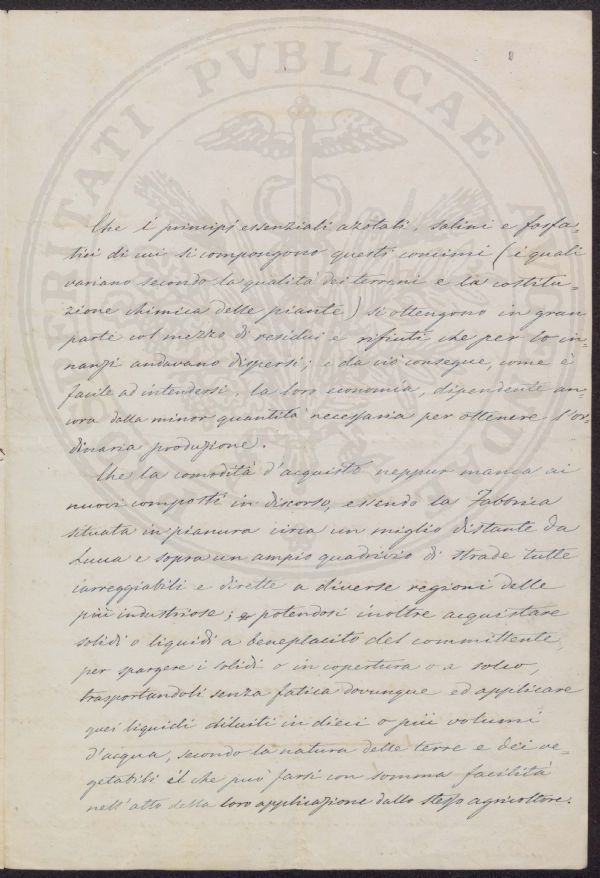 8
Che i principj essenziali azotati, salini e fosfa-
tici di cui si compongono questi concimi (i quali
variano secondo la qualità dei terreni e la costitu-
zione chimica delle piante) si ottengono in gran
parte col mezzo di residui e rifiuti che per lo in-
nanzi andavano dispersi; e da ciò consegue, come è
facile ad intendersi, la loro economia, dipendente an-
cora dalla minor quantità necessaria per ottenere l'or-
dinaria produzione.
Che la comodità d'acquisto neppur manca ai
nuovi composti in discorso, essendo la Fabbrica
situata in pianura circa un miglio distante da
Lucca e sopra un ampio quadrivio di strade tutte
carreggiabili e dirette a diverse regioni delle
più industriose; potendosi inoltre acquistare
solidi o liquidi a beneplacito del committente,
per spargere i solidi o in copertura o a solco,
trasportandoli senza fatica dovunque ed applicare
quei liquidi diluiti in dieci o più volumi
d'acqua, secondo la natura delle terre e dei ve-
getabili il che può farsi con somma facilità
nell'atto della loro applicazione dallo stesso agricoltore.
PROSPERITATI PVBLICAE AVGENDAE